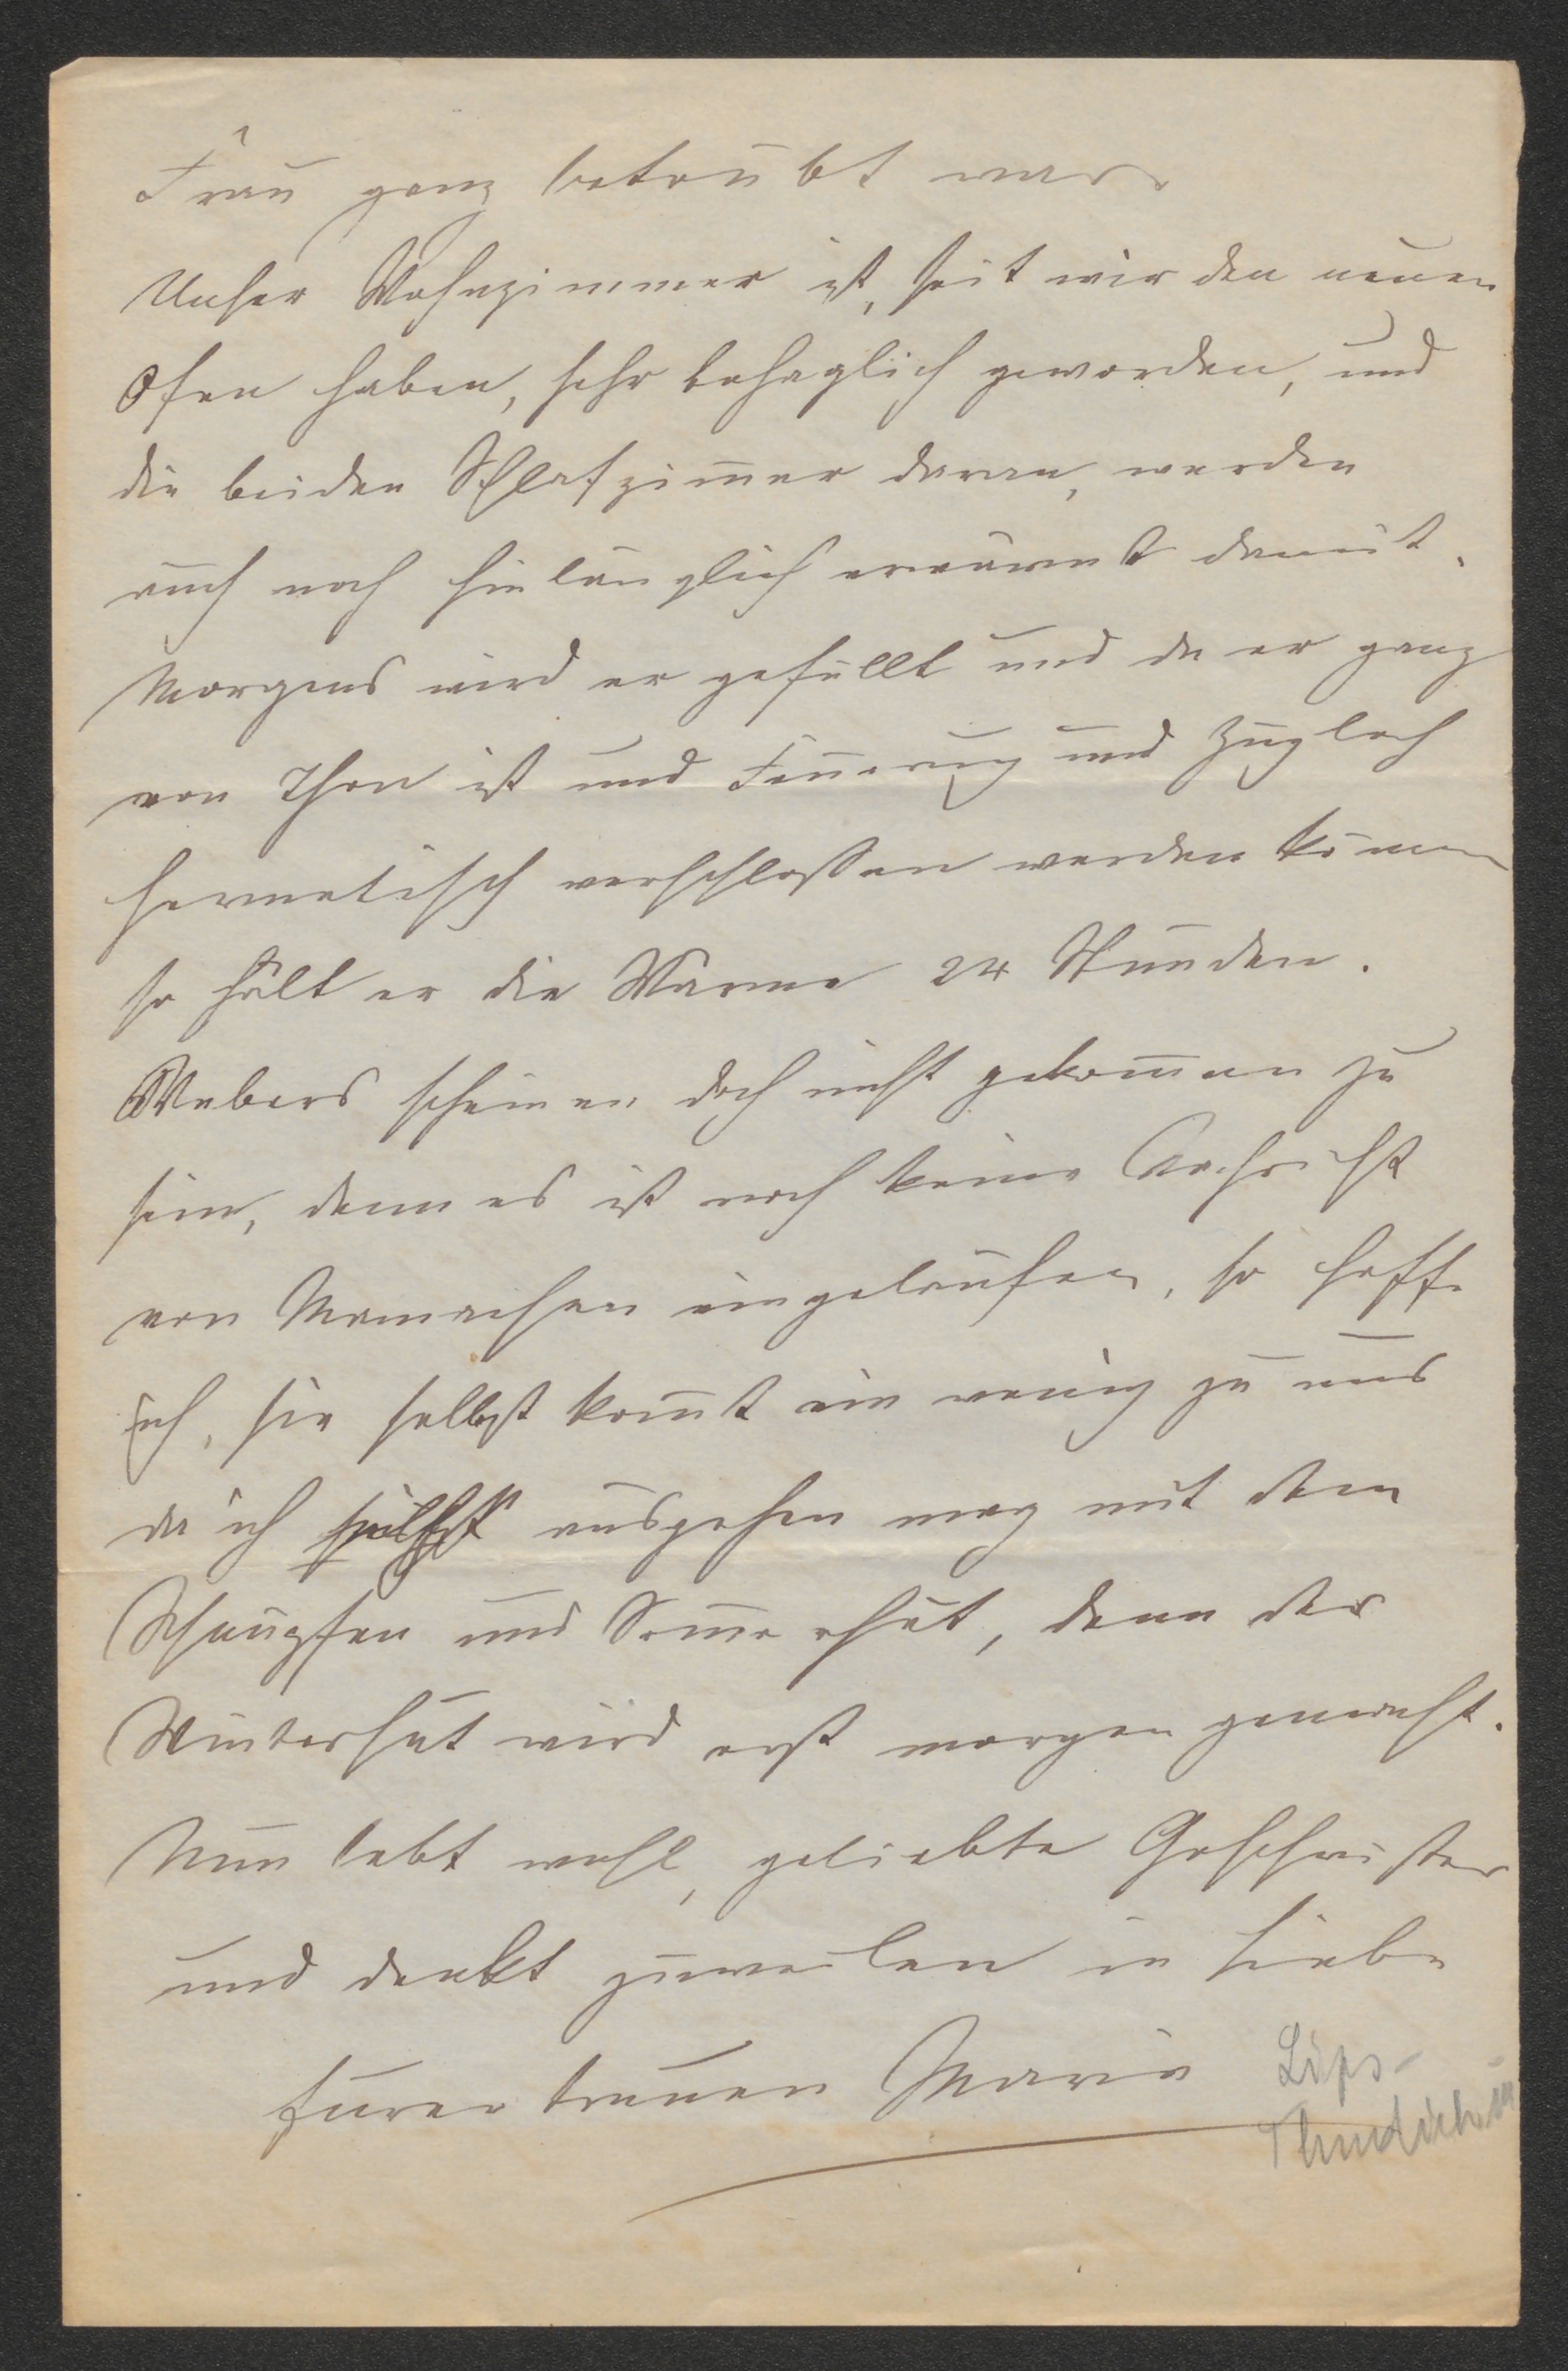 Frau ganz betrübt war.
Unser Wohnzimmer ist, seit wir den neuen
Ofen haben, sehr behaglich geworden, und
die beiden Schlafzim̅er daran, werden
auch noch hinlänglich erwärmt damit.
Morgens wird er gefüllt und da er ganz
von Thon ist und Feuerung und Zugloch
hermetisch verschlossen werden könen
so hält er die Wärme 24 Stunden.
Webers scheinen doch nicht gekom̅en zu
sein, denn es ist noch keine Nachricht
von Mamachen eingelaufen, so hoffe
ich, sie selbst kom̅t ein wenig zu uns
da ich ausgehen mag mit dem
Schnupfen und Som̅erhut, denn der
Winterhut wird erst morgen gemacht.
Nun lebt wohl, geliebte Geschwister
und denkt zuweilen in Liebe
Eurer treuen Marie
Lips-
Thudichum